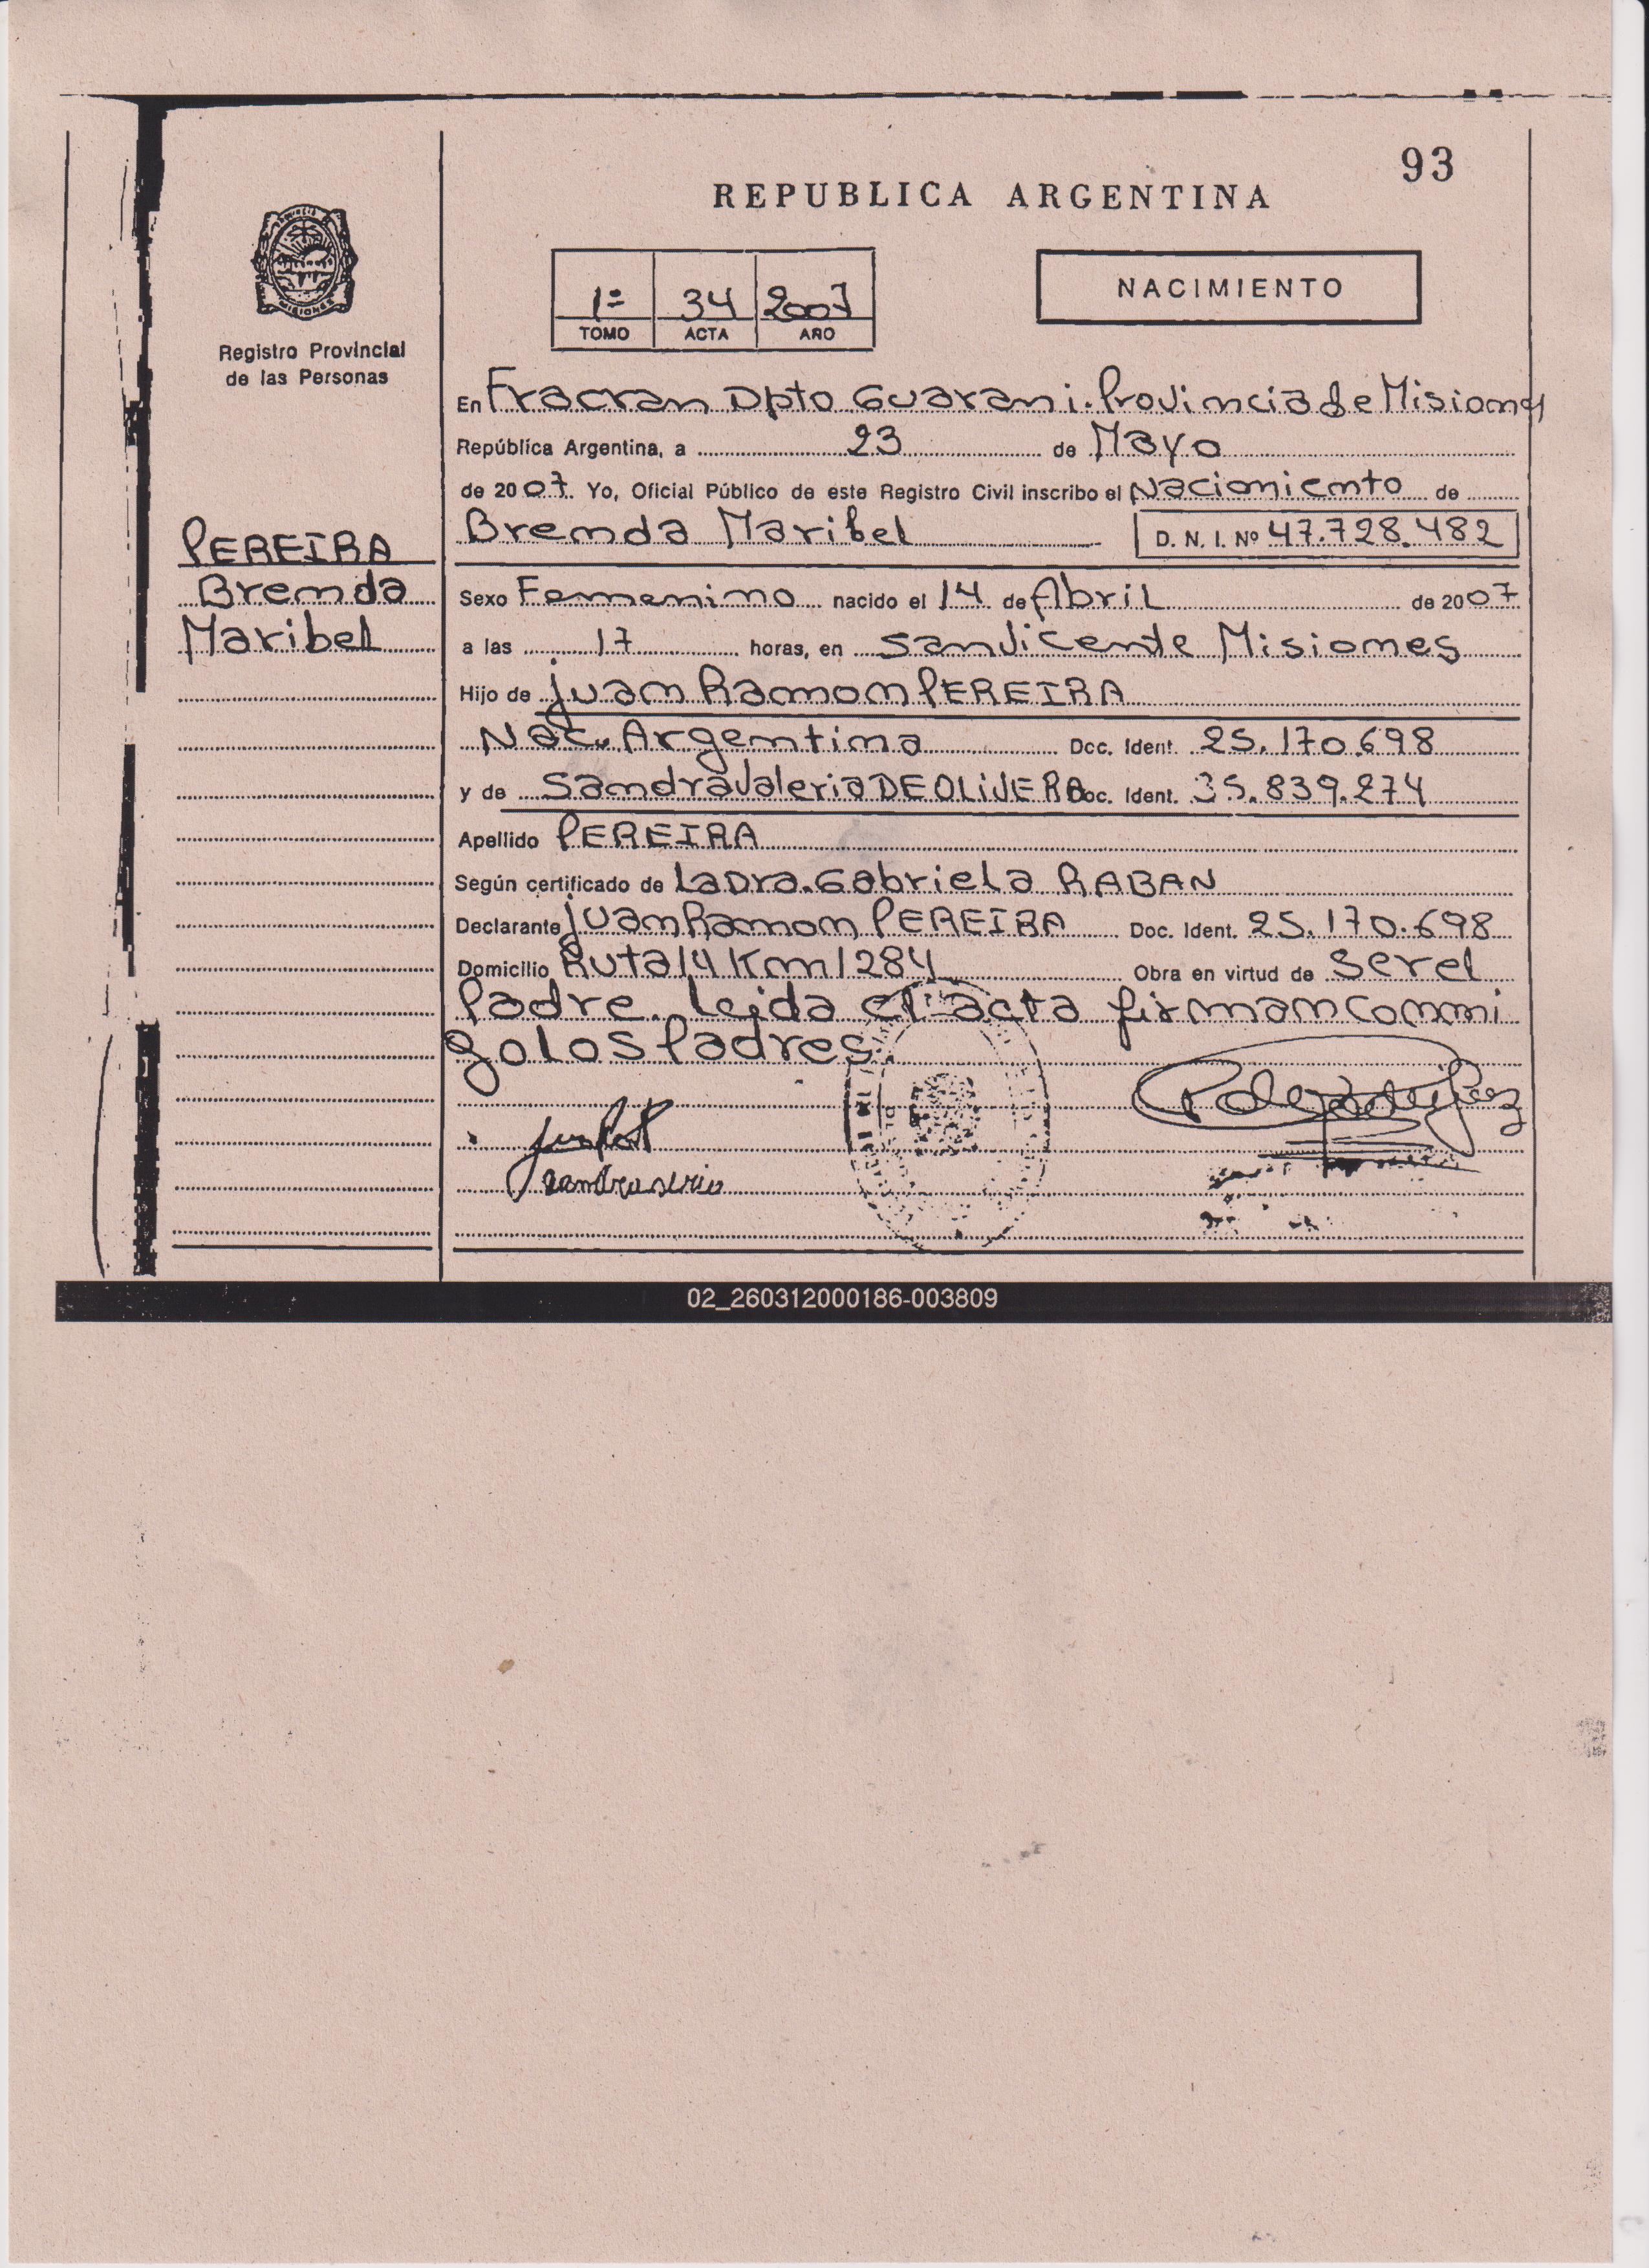 93
REPUBLICA ARGENTINA
MISIONES
Registro Provincial
de las Personas
1º 34 2007
TOMO ACTA AÑO
NACIMIENTO
En Fracran Dpto Guarani. Provincia de Misiones
República Argentina, a 23 de Mayo
de 2007. Yo, Oficial Público de este Registro Civil inscribo el Nacimiento de
Brenda Maribel D. N. I. Nº 47.728.482
PEREIRA
Brenda
Maribel
Sexo Femenino nacido el 14 de Abril de 2007
a las 17 horas, en San Vicente Misiones
Hijo de Juan Ramon PEREIRA
Nac. Argentina Doc. Ident. 25.170.698
y de Sandra Valeria DE OLIVERA Doc. Ident. 35.839.274
Apellido PEREIRA
Según certificado de La Dra. Gabriela RABAN
Declarante Juan Ramon PEREIRA Doc. Ident. 25.170.698
Domicilio Ruta 14 Km 1284 Obra en virtud de ser el
Padre. Leida el acta firman conmi
go los Padres.
02_260312000186-003809